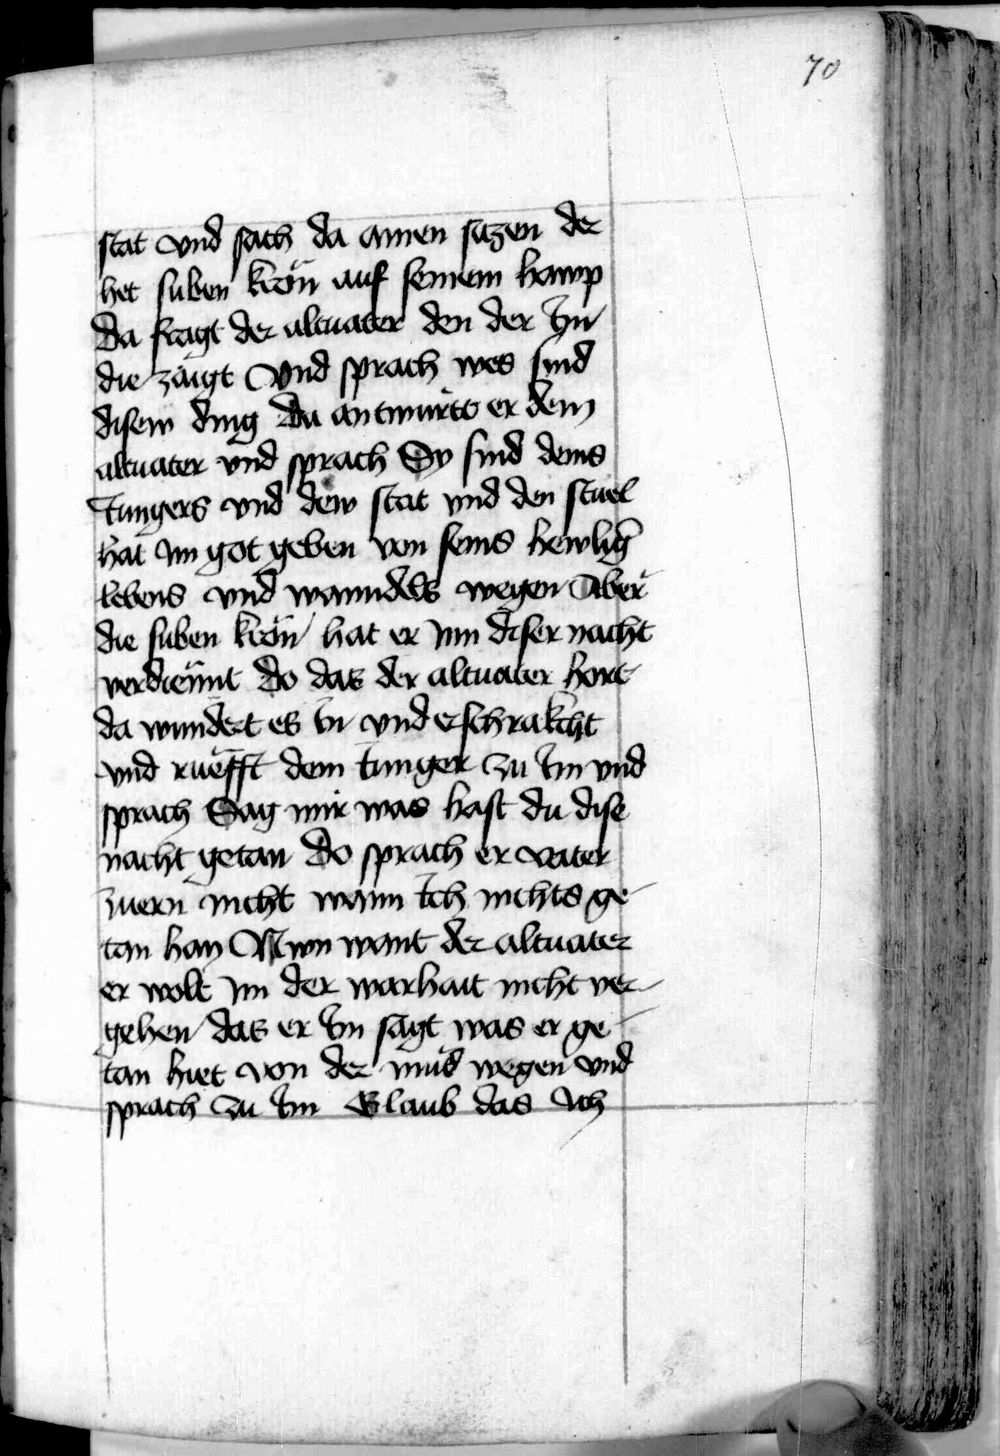 70
stat vnd sach da ainen siczen der
het siben krön auf seinem hawp
Da fragt der altuater den der Im
die zaigt Vnd sprach wes sind
disew ding Da antwurtt er dem
altuater vnd sprach Sy sind deins
Iungers vnd dew stat vnd den stuel
hat im got geben von seins hewlig
lebens vnd wanndels wegen Aber
die siben krön hat er inn diser nacht
verdiennt Do das der altuater hort
da wundert es in vnd erschrakcht
vnd ruefft dem Iunger zu Im vnd
sprach Sag mir was hast du dise
nacht getan Do sprach er vater
nicht wann Ich nichts ge
tan han Nwn want der altuater
er wolt im der warhait nicht ver
gehen das er Im sagt was er ge
tan hiet von der müd wegen vnd
sprach zu Im Glaub das Ich